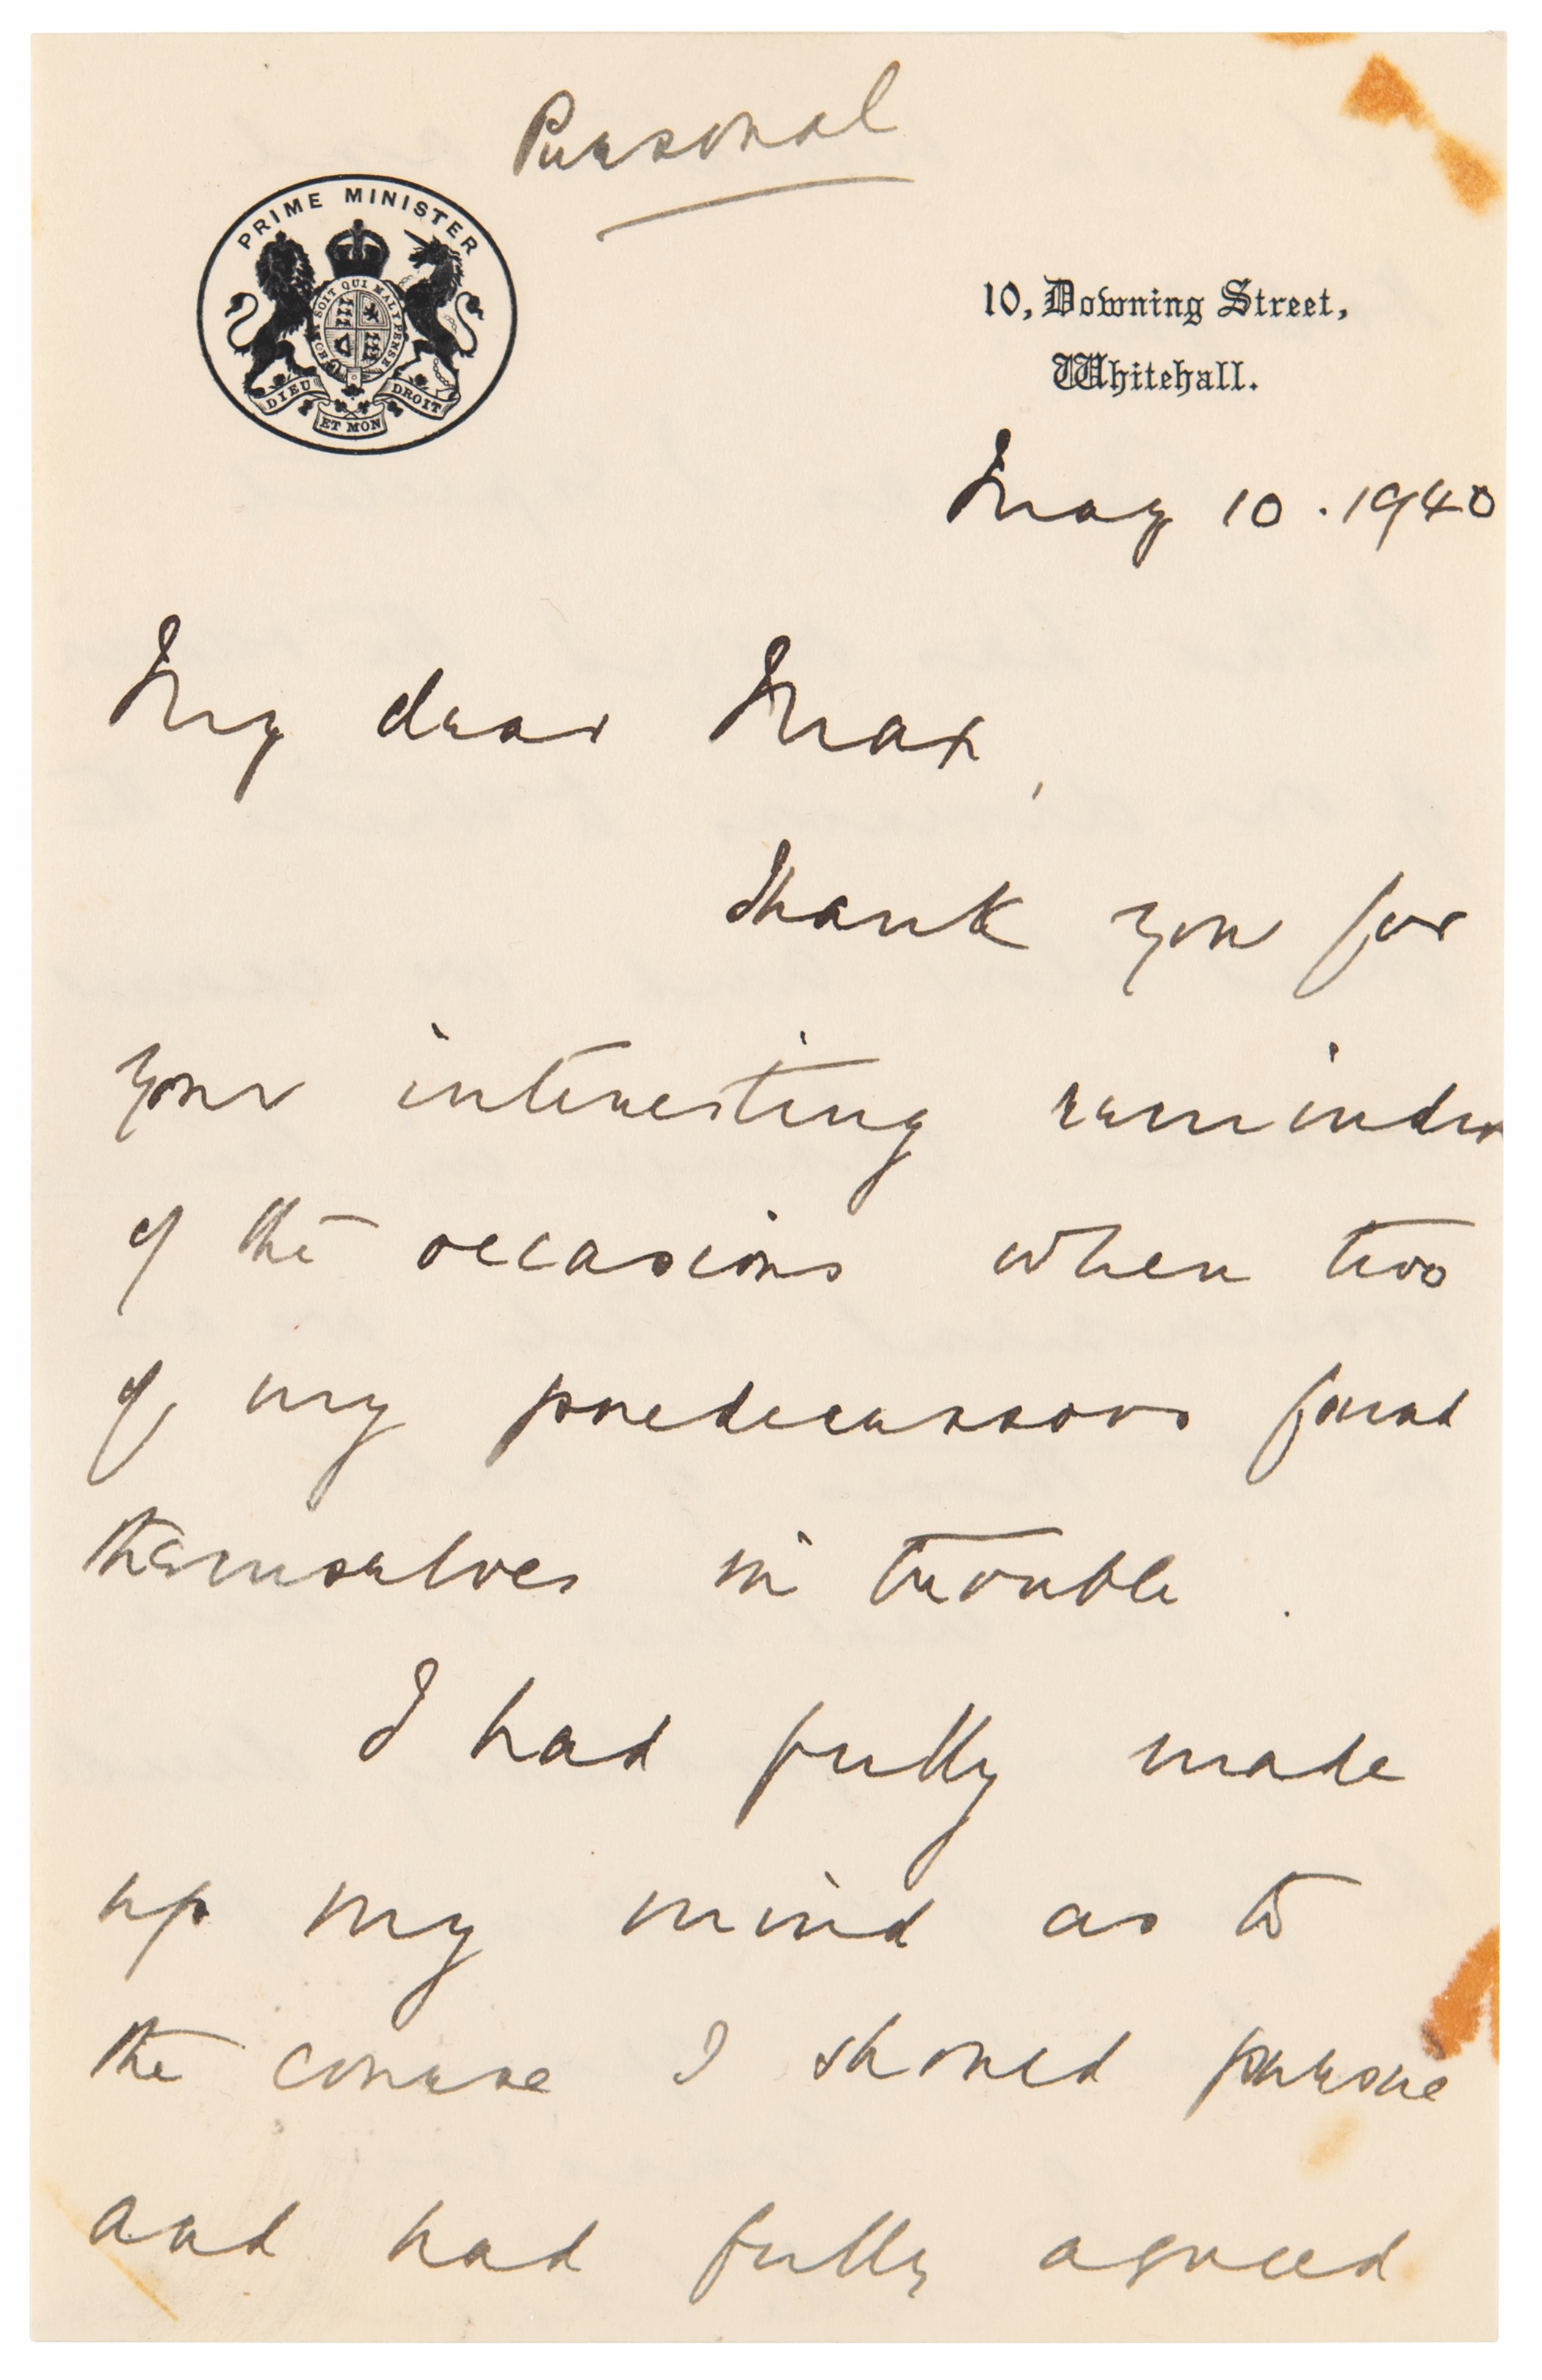 Personal
PRIME MINISTER
HONI SOIT QUI MAL Y PENSE
DIEU ET MON DROIT
10, Downing Street,
Whitehall.
May 10 . 1940
My dear Max,
Thank you for
your interesting reminder
of the occasions when two
of my predecessors found
themselves in trouble.
I had fully made
up my mind as to
the course I should pursue
and had fully agreed